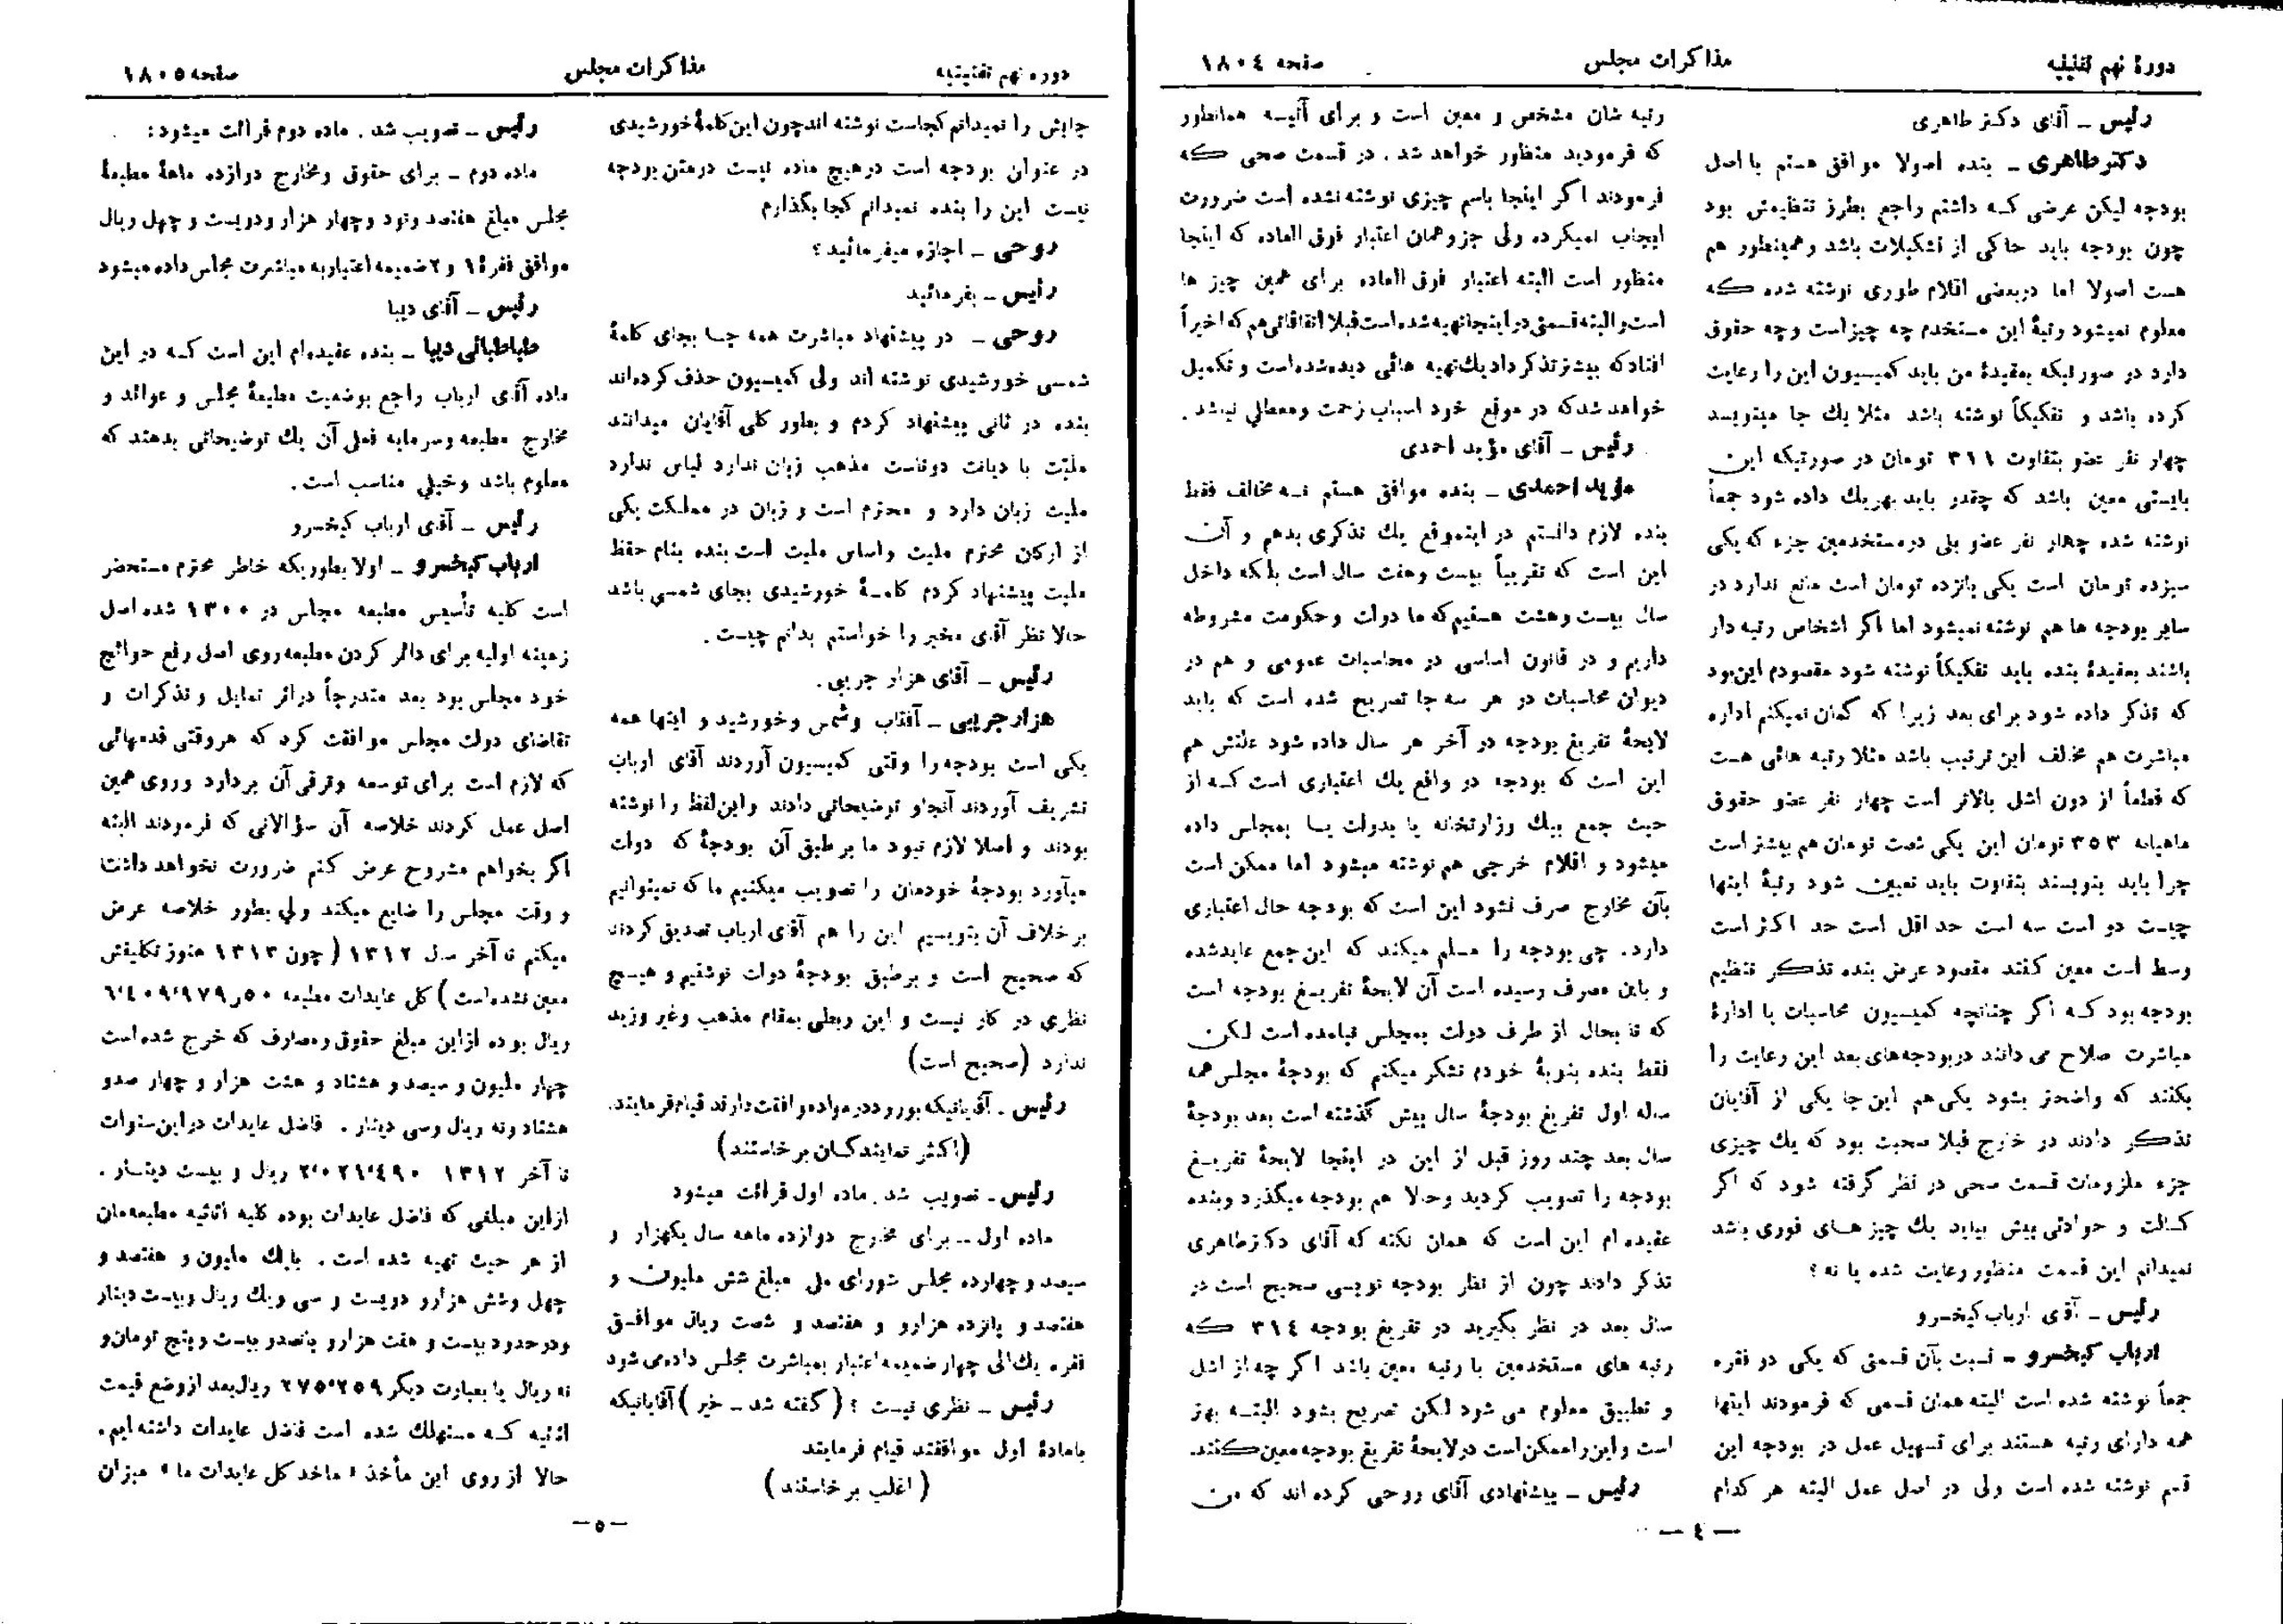 دورهٔ نهم تقنینیه
مذاکرات مجلس
صفحه ۱۸۰۴
رئیس ـ آقای دکتر طاهری
دکتر طاهری ـ بنده اصولا موافق هستم با اصل
بودجه لیکن عرضی که داشتم راجع بطرز تنظیمش بود
چون بودجه باید حاکی از تشکیلات باشد و همینطور هم
هست اصولا اما در بعضی اقلام طوری نوشته شده که
معلوم نمیشود رتبهٔ این مستخدم چه چیز است و چه حقوق
دارد در صورتیکه بعقیدهٔ من باید کمیسیون این را رعایت
کرده باشد و تفکیکاً نوشته باشد مثلا یك جا مینویسد
چهار نفر عضو بتفاوت ۳۱۱ تومان در صورتیکه این
بایستی معین باشد که چقدر باید بهریك داده شود جمعاً
نوشته شده چهار نفر عضو بلی در مستخدمین جزء که یکی
سیزده تومان است یکی پانزده تومان است مانع ندارد در
سایر بودجه ها هم نوشته نمیشود اما اگر اشخاص رتبه دار
باشند بعقیدهٔ بنده باید تفکیکاً نوشته شود مقصودم این بود
که تذکر داده شود برای بعد زیرا که گمان نمیکنم اداره
مباشرت هم مخالف این ترتیب باشد مثلا رتبه هائی هست
که قطعاً از دون اشل بالاتر است چهار نفر عضو حقوق
ماهیانه ۳۵۳ تومان این یکی شصت تومان هم بیشتر است
چرا باید بنویسند بتفاوت باید تعیین شود رتبهٔ اینها
چیست دو است سه است حد اقل است حد اکثر است
وسط است معین کنند مقصود عرض بنده تذکر تنظیم
بودجه بود که اگر چنانچه کمیسیون محاسبات با ادارهٔ
مباشرت صلاح می دانند در بودجه‌های بعد این رعایت را
بکنند که واضحتر بشود یکی هم این جا یکی از آقایان
تذکر دادند در خارج قبلا صحبت بود که یك چیزی
جزء ملزومات قسمت صحی در نظر گرفته شود که اگر
کسالت و حوادثی پیش بیاید یك چیز هـای فوری باشد
نمیدانم این قسمت منظور رعایت شده یا نه؟
رئیس ـ آقای ارباب کیخسرو
ارباب کیخسرو ـ نسبت بآن قسمتی که یکی در فقره
جمعاً نوشته شده است البته همان قسمی که فرمودند اینها
همه دارای رتبه هستند برای تسهیل عمل در بودجه این
قسم نوشته شده است ولی در اصل عمل البته هر کدام
رتبه شان مشخص و معین است و برای آتیه همانطور
که فرمودید منظور خواهد شد. در قسمت صحی که
فرمودند اگر اینجا باسم چیزی نوشته نشده است ضرورت
ایجاب نمیکرده ولی جزو همان اعتبار فوق العاده که اینجا
منظور است البته اعتبار فوق العاده برای همین چیز ها
است و البته قسمتی در اینجا تهیه شده است قبلا اتفاقاتی هم که اخیراً
افتاد که بیشتر تذکر داد یك تهیه هائی دیده شده است و تکمیل
خواهد شد که در موقع خود اسباب زحمت و معطلی نباشد.
رئیس ـ آقای مؤید احمدی
مؤید احمدی ـ بنده موافق هستم نه مخالف فقط
بنده لازم دانستم در اینموقع یك تذکری بدهم و آن
این است که تقریباً بیست و هفت سال است بلکه داخل
سال بیست و هشت هستیم که ما دولت و حکومت مشروطه
داریم و در قانون اساسی در محاسبات عمومی و هم در
دیوان محاسبات در هر سه جا تصریح شده است که باید
لایحهٔ تفریغ بودجه در آخر هر سال داده شود علتش هم
این است که بودجه در واقع یك اعتباری است که از
حیث جمع بیك وزارتخانه یا بدولت یـا بمجلس داده
میشود و اقلام خرجی هم نوشته میشود اما ممکن است
بآن مخارج صرف نشود این است که بودجه حال اعتباری
دارد. چی بودجه را مسلم میکند که این جمع عاید شده
و باین مصرف رسیده است آن لایحهٔ تفریغ بودجه است
که تا بحال از طرف دولت بمجلس نیامده است لکن
فقط بنده بنوبهٔ خودم تشکر میکنم که بودجهٔ مجلس همه
ساله اول تفریغ بودجهٔ سال پیش گذشته است بعد بودجهٔ
سال بعد چند روز قبل از این در اینجا لایحهٔ تفریغ
بودجه را تصویب کردید و حالا هم بودجه میگذرد و بنده
عقیده ام این است که همان نکته که آقای دکتر طاهری
تذکر دادند چون از نظر بودجه نویسی صحیح است در
سال بعد در نظر بگیرید در تفریغ بودجه ۳۱۴ که
رتبه های مستخدمین با رتبه معین باشد اگر چه از اشل
و تطبیق معلوم می شود لکن تصریح بشود البته بهتر
است و این را ممکن است در لایحهٔ تفریغ بودجه معین کنند.
رئیس ـ پیشنهادی آقای روحی کرده اند که من
ـ ۴ ـ
دوره نهم تقنینیه
مذاکرات مجلس
صفحه ۱۸۰۵
جایش را نمیدانم کجاست نوشته اند چون این کلمهٔ خورشیدی
در عنوان بودجه است در هیچ ماده نیست در متن بودجه
نیست این را بنده نمیدانم کجا بگذارم
روحی ـ اجازه میفرمائید؟
رئیس ـ بفرمائید
روحی ـ در پیشنهاد مباشرت همه جا بجای کلمهٔ
شمسی خورشیدی نوشته اند ولی کمیسیون حذف کرده‌اند
بنده در ثانی پیشنهاد کردم و بطور کلی آقایان میدانند
ملیّت با دیانت دوتاست مذهب زبان ندارد لباس ندارد
ملیت زبان دارد و محترم است و زبان در مملکت یکی
از ارکان محترم ملیت و اساس ملیت است بنده بنام حفظ
ملیت پیشنهاد کردم کلمـهٔ خورشیدی بجای شمسی باشد
حالا نظر آقای مخبر را خواستم بدانم چیست.
رئیس ـ آقای هزار جریبی.
هزار جریبی ـ آفتاب و شمس و خورشید و اینها همه
یکی است بودجه را وقتی کمیسیون آوردند آقای ارباب
تشریف آوردند آنجا و توضیحاتی دادند و این لفظ را نوشته
بودند و اصلا لازم نبود ما بر طبق آن بودجهٔ که دولت
میآورد بودجهٔ خودمان را تصویب میکنیم ما که نمیتوانیم
برخلاف آن بنویسیم این را هم آقای ارباب تصدیق کردند
که صحیح است و برطبق بودجهٔ دولت نوشتیم و هیـچ
نظری در کار نیست و این ربطی بمقام مذهب و غیر و زید
ندارد (صحیح است)
رئیس ـ آقایانیکه بورود در مواد موافقت دارند قیام فرمایند.
(اکثر نمایندگـان برخاستند)
رئیس ـ تصویب شد. ماده اول قرائت میشود
ماده اول ـ برای مخارج دوازده ماهه سال یکهزار و
سیصد و چهارده مجلس شورای ملی مبلغ شش ملیون و
هفتصد و پانزده هزار و و هفتصد و شصت ریال موافـق
فقره یك الی چهار ضمیمه اعتبار بمباشرت مجلس داده می شود
رئیس ـ نظری نیست؟ (گفته شد ـ خیر) آقایانیکه
بامادهٔ اول موافقند قیام فرمایند
(اغلب برخاستند)
رئیس ـ تصویب شد. ماده دوم قرائت میشود:
ماده دوم ـ برای حقوق و مخارج دوازده ماههٔ مطبعهٔ
مجلس مبلغ هفتصد و نود و چهار هزار و دویست و چهل ریال
موافق فقرهٔ ۱ و ۲ ضمیمه اعتبار به مباشرت مجلس داده میشود
رئیس ـ آقای دیبا
طباطبائی دیبا ـ بنده عقیده‌ام این است که در این
ماده آقای ارباب راجع بوضعیت مطبعهٔ مجلس و عوائد و
مخارج مطبعه و سرمایه فعلی آن یك توضیحاتی بدهند که
معلوم باشد و خیلی مناسب است.
رئیس ـ آقای ارباب کیخسرو
ارباب کیخسرو ـ اولا بطوریکه خاطر محترم مستحضر
است کلیه تأسیس مطبعه مجلس در ۱۳۰۰ شده اصل
زمینه اولیه برای دائر کردن مطبعه روی اصل رفع حوائج
خود مجلس بود بعد متدرجاً در اثر تمایل و تذکرات و
تقاضای دولت مجلس موافقت کرد که هر وقتی قدمهائی
که لازم است برای توسعه و ترقی آن بردارد و روی همین
اصل عمل کردند خلاصه آن سؤالاتی که فرمودند البته
اگر بخواهم مشروح عرض کنم ضرورت نخواهد داشت
و وقت مجلس را ضایع میکند ولی بطور خلاصه عرض
میکنم تا آخر سال ۱۳۱۲ (چون ۱۳۱۳ هنوز تکلیفش
معین نشده است) کل عایدات مطبعه ۶٬۴۰۹٬۹۷۹ر۵۰
ریال بوده از این مبلغ حقوق و مصارف که خرج شده است
چهار ملیون و سیصد و هشتاد و هشت هزار و چهار صد و
هشتاد و نه ریال و سی دینار. فاضل عایدات در این سنوات
تا آخر ۱۳۱۲ ۲٬۰۲۱٬۴۹۰ ریال و بیست دینـار.
از این مبلغی که فاضل عایدات بوده کلیه اثاثیه مطبعه‌مان
از هر حیث تهیه شده است. بایك ملیون و هفتصد و
چهل و شش هزار و دویست و سی و یك ریال و بیست دینار
و در حدود بیست و هفت هزار و پانصد و بیست و پنج تومان و
نه ریال یا بعبارت دیگر ۲۷۵٬۲۵۹ ریال بعد از وضع قیمت
اثثیه کـه مستهلك شده است فاضل عایدات داشته ایم.
حالا از روی این مأخذ «ماخذ کل عایدات ما» میزان
ـ ۵ ـ